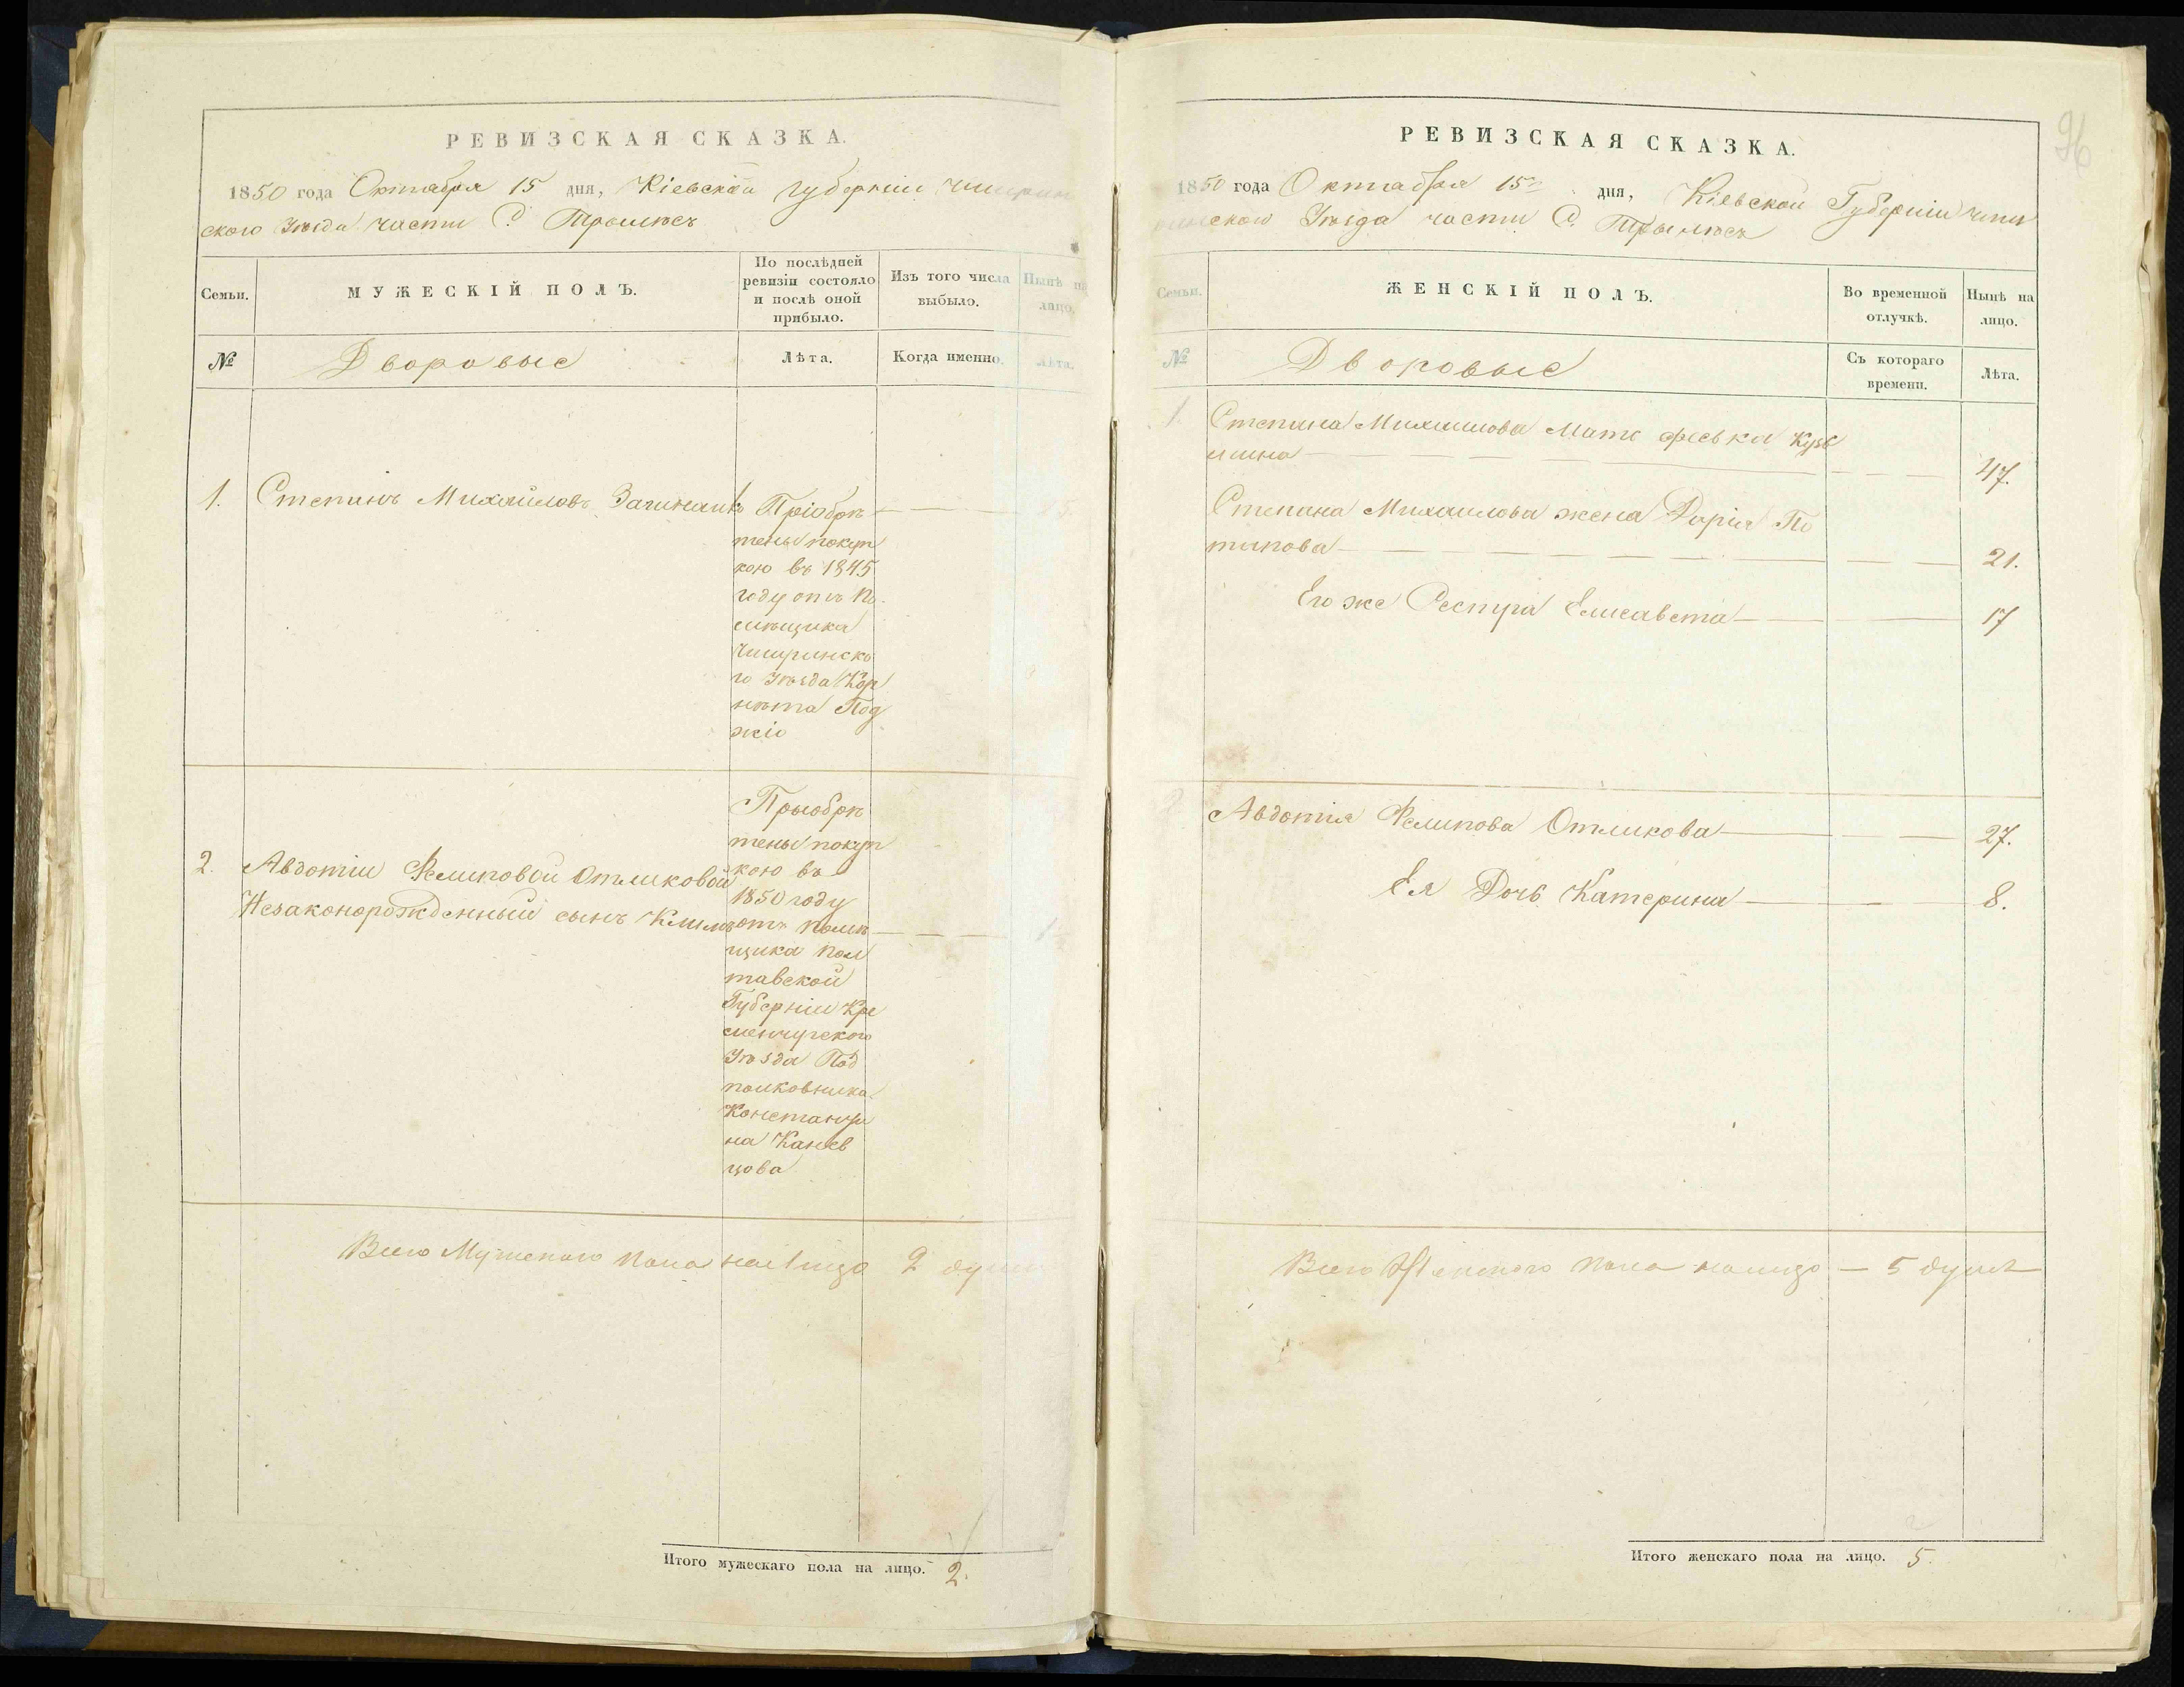 РЕВИЗСКАЯ СКАЗКА.
1850 года Октября 15 дня, Кіевской Губерніи Чигирин
ского Уѣзда части С. Трылѣсъ
Семьи.
МУЖЕСКІЙ ПОЛЪ.
По послѣдней
ревизіи состояло
и послѣ оной
прибыло.
Изъ того числа
выбыло.
Нынѣ на
лицо.
№
Дворовые
Лѣта.
Когда именно.
Лѣта.
1.
Степанъ Михайловъ
Пріобрѣ
тены покуп
кою въ 1845
году отъ По
мѣщика
Чигиринско
го Уѣзда Кор
нета Под
жіо
2.
Авдотіи Филиповой Отликовой
Незаконорожденный сынъ Климъ
Прыобрѣ
тены покуп
кою въ
1850 году
отъ помѣ
щика Пол
тавской
Губерніи Кре
менчугского
Уѣзда Под
полковника
Константи
на Канев
цова
1
Всего Мужеского пола налицо 2 души
Итого мужескаго пола на лицо. 2.
96
РЕВИЗСКАЯ СКАЗКА.
1850 года Октября 15 дня, Кіевской Губерніи Чиги
ринского Уѣзда части С. Трылѣсъ
Семьи.
ЖЕНСКІЙ ПОЛЪ.
Во временной
отлучкѣ.
Нынѣ на
лицо.
№
Дворовые
Съ котораго
времени.
Лѣта.
1.
Степана Михайлова Мать Феська Кузь
мина 47.
Степана Михайлова жена Дарія По
тапова 21.
Его же Сестра Елисавета 17
2
Авдотія Филипова Отликова 27.
Ея Дочь Катерина 8.
Всего Женского пола налицо — 5 душъ
Итого женскаго пола на лицо. 5.